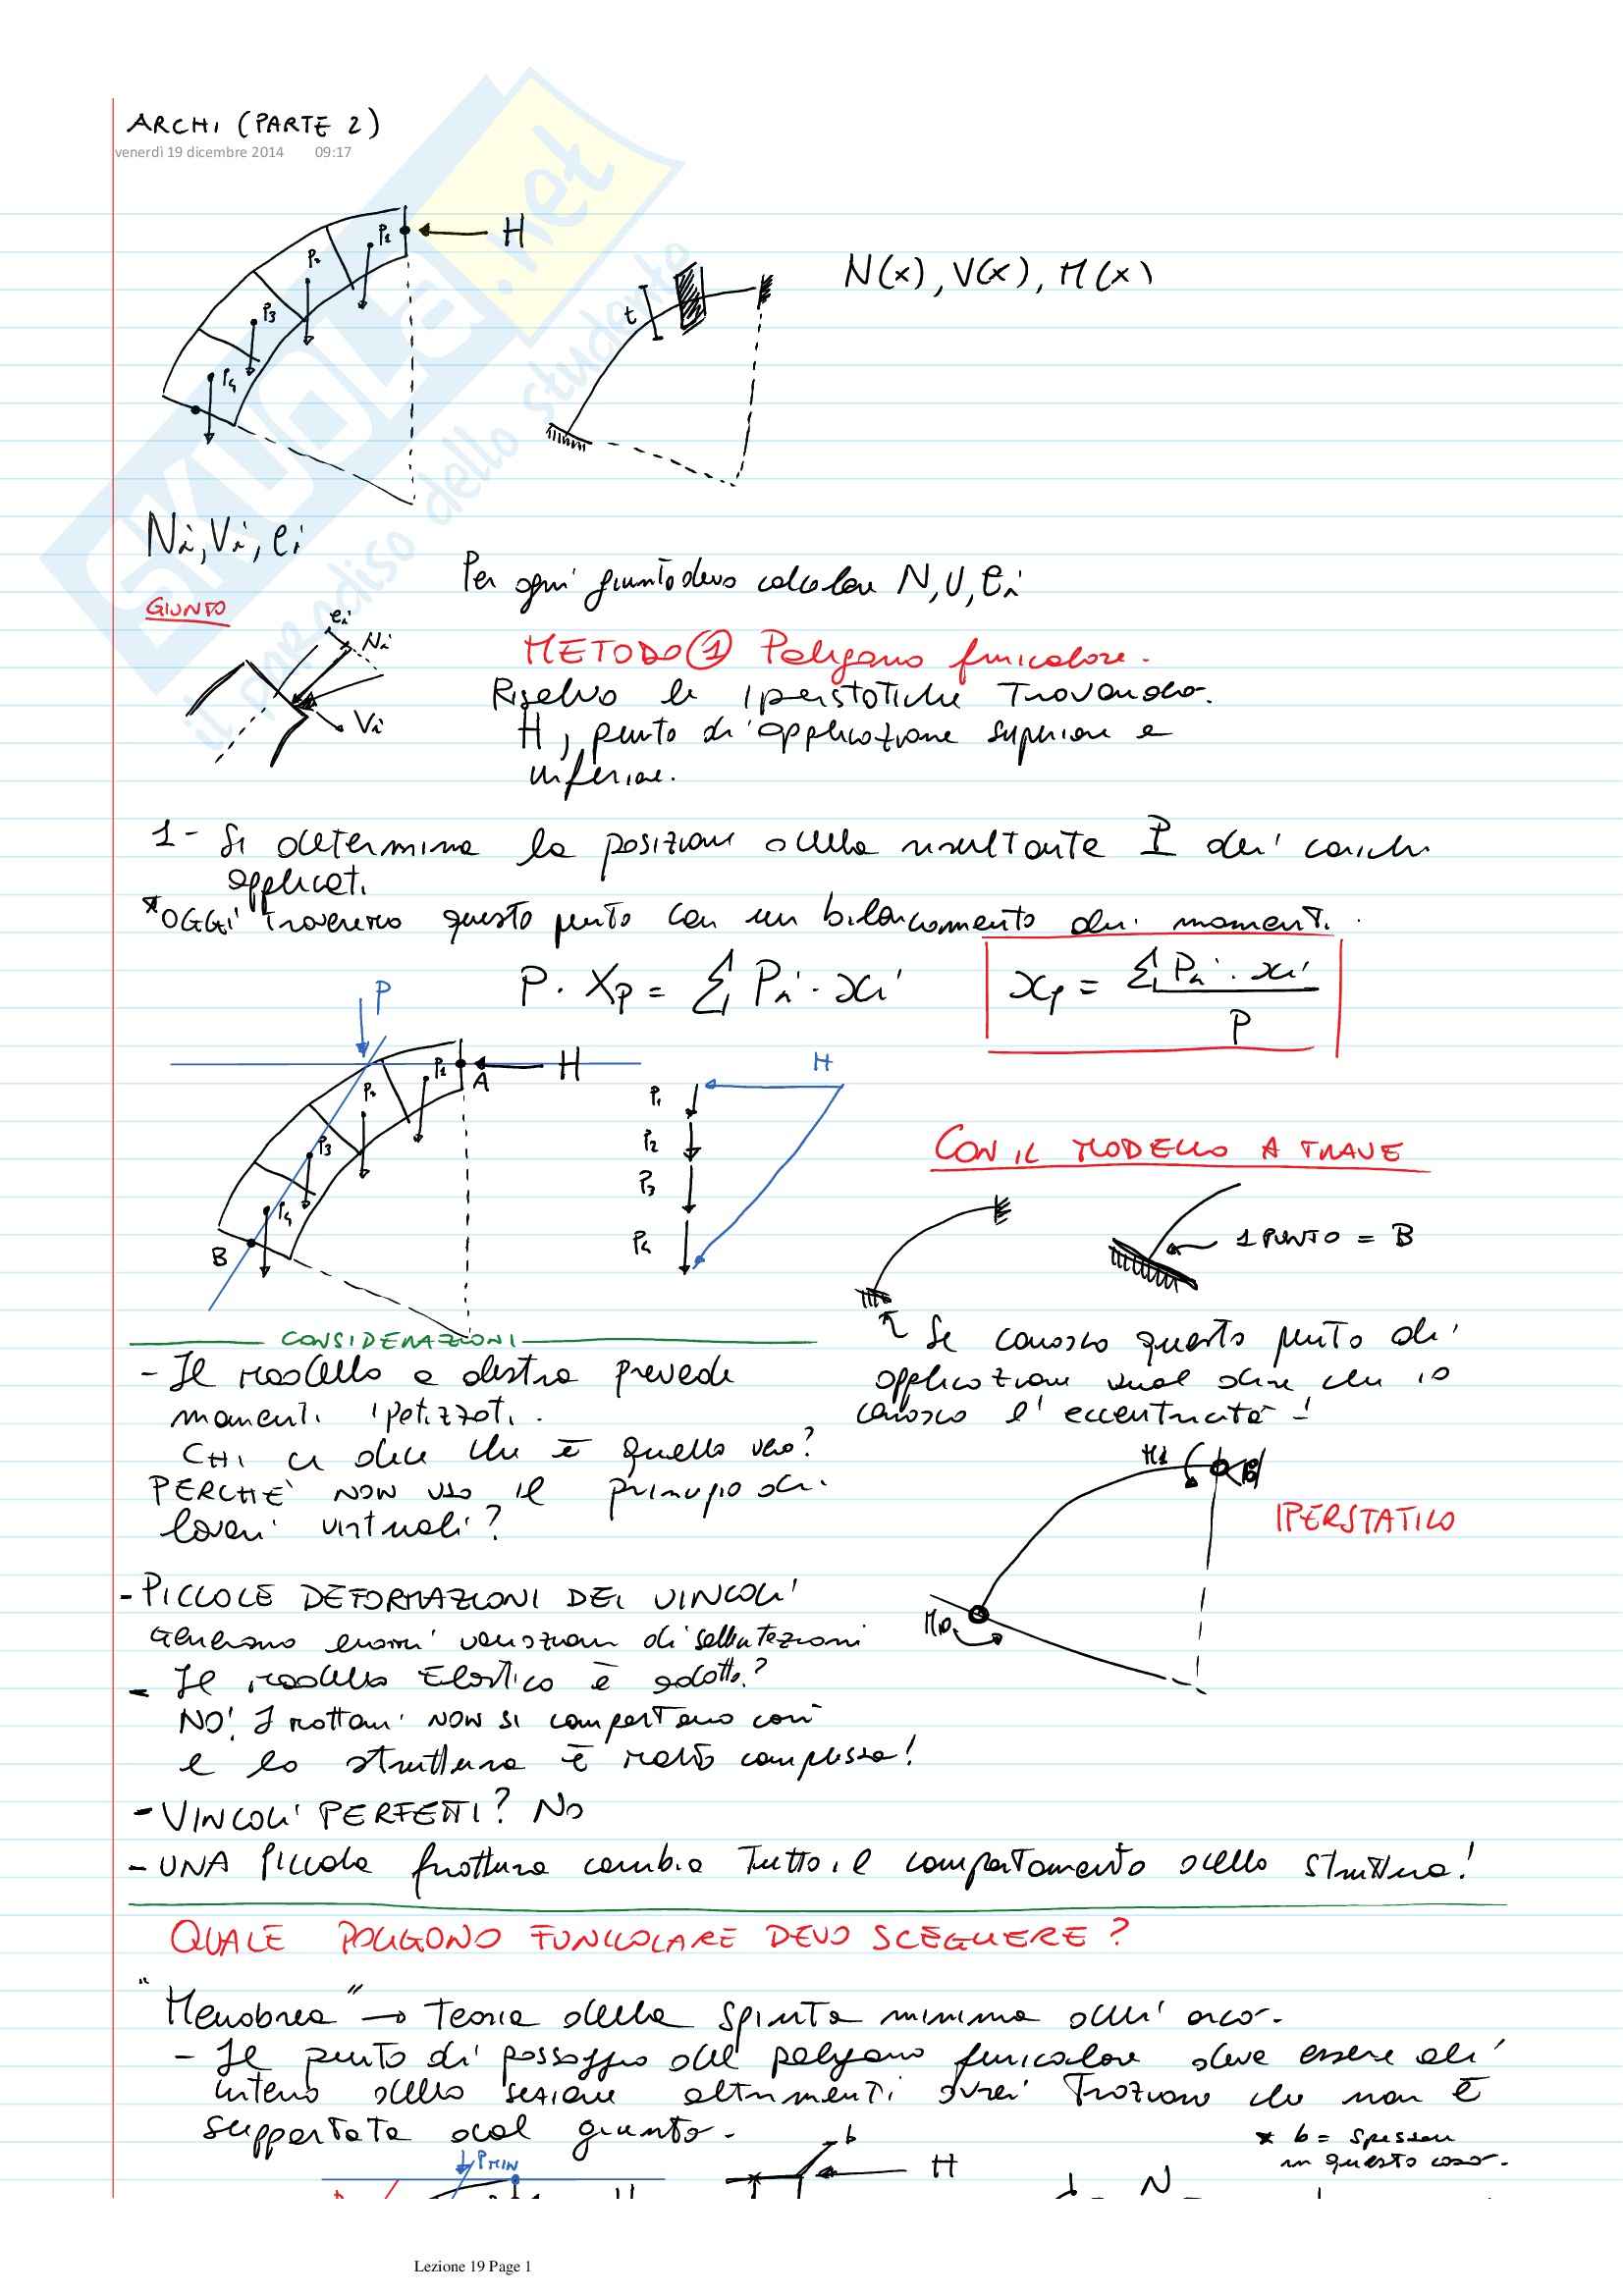 ARCHI (PARTE 2)
venerdì 19 dicembre 2014 09:17
SKUOLA.net
il paradiso dello studente
P1
H
P2
P3
P4
t
N(x), V(x), M(x)
Ni, Vi, ei
Per ogni giunto devo calcolare N, V, ei
GIUNTO
ei
Ni
Vi
METODO 1 Poligono funicolare.
Risolvo le iperstatiche Trovando.
H, punto di applicazione superiore e
inferiore.
1- Si determina la posizione della risultante P dei carichi
applicati
*OGGI Troveremo questo punto con un bilanciamento dei momenti.
P · Xp = Σ Pi · xi
xp = Σ Pi · xi / P
P
P1
A
H
P2
P3
P4
B
H
P1
P2
P3
P4
CON IL MODELLO A TRAVE
1 PUNTO = B
Se conosco questo punto di
applicazione vuol dire che io
conosco l'eccentricità!
CONSIDERAZIONI
- Il modello a destra prevede
momenti ipotizzati.
CHI ci dice che è quello vero?
PERCHÈ NON USO il principio dei
lavori virtuali?
M1
MB
IPERSTATICO
- PICCOLE DEFORMAZIONI DEI VINCOLI
Generano enormi variazioni di sollecitazioni
- Il modello Elastico è adatto?
NO! I mattoni NON si comportano così
e la struttura è molto complessa!
- VINCOLI PERFETTI? NO
- UNA Piccola frattura cambia Tutto il comportamento della struttura!
QUALE POLIGONO FUNICOLARE DEVO SCEGLIERE?
"Menabrea" → Teoria della Spinta minima dell'arco.
- Il punto di passaggio del poligono funicolare deve essere all'
interno della sezione altrimenti avrei Trazione che non è
supportata dal giunto.
* b = spessore
in questo caso.
PMIN
b
H
N
Lezione 19 Page 1